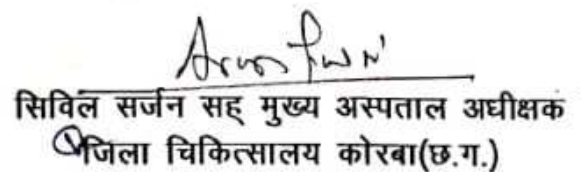 सिविल सर्जन सह् मुख्य अस्पताल अधीक्षक
जिला चिकित्सालय कोरबा(छ.ग.)